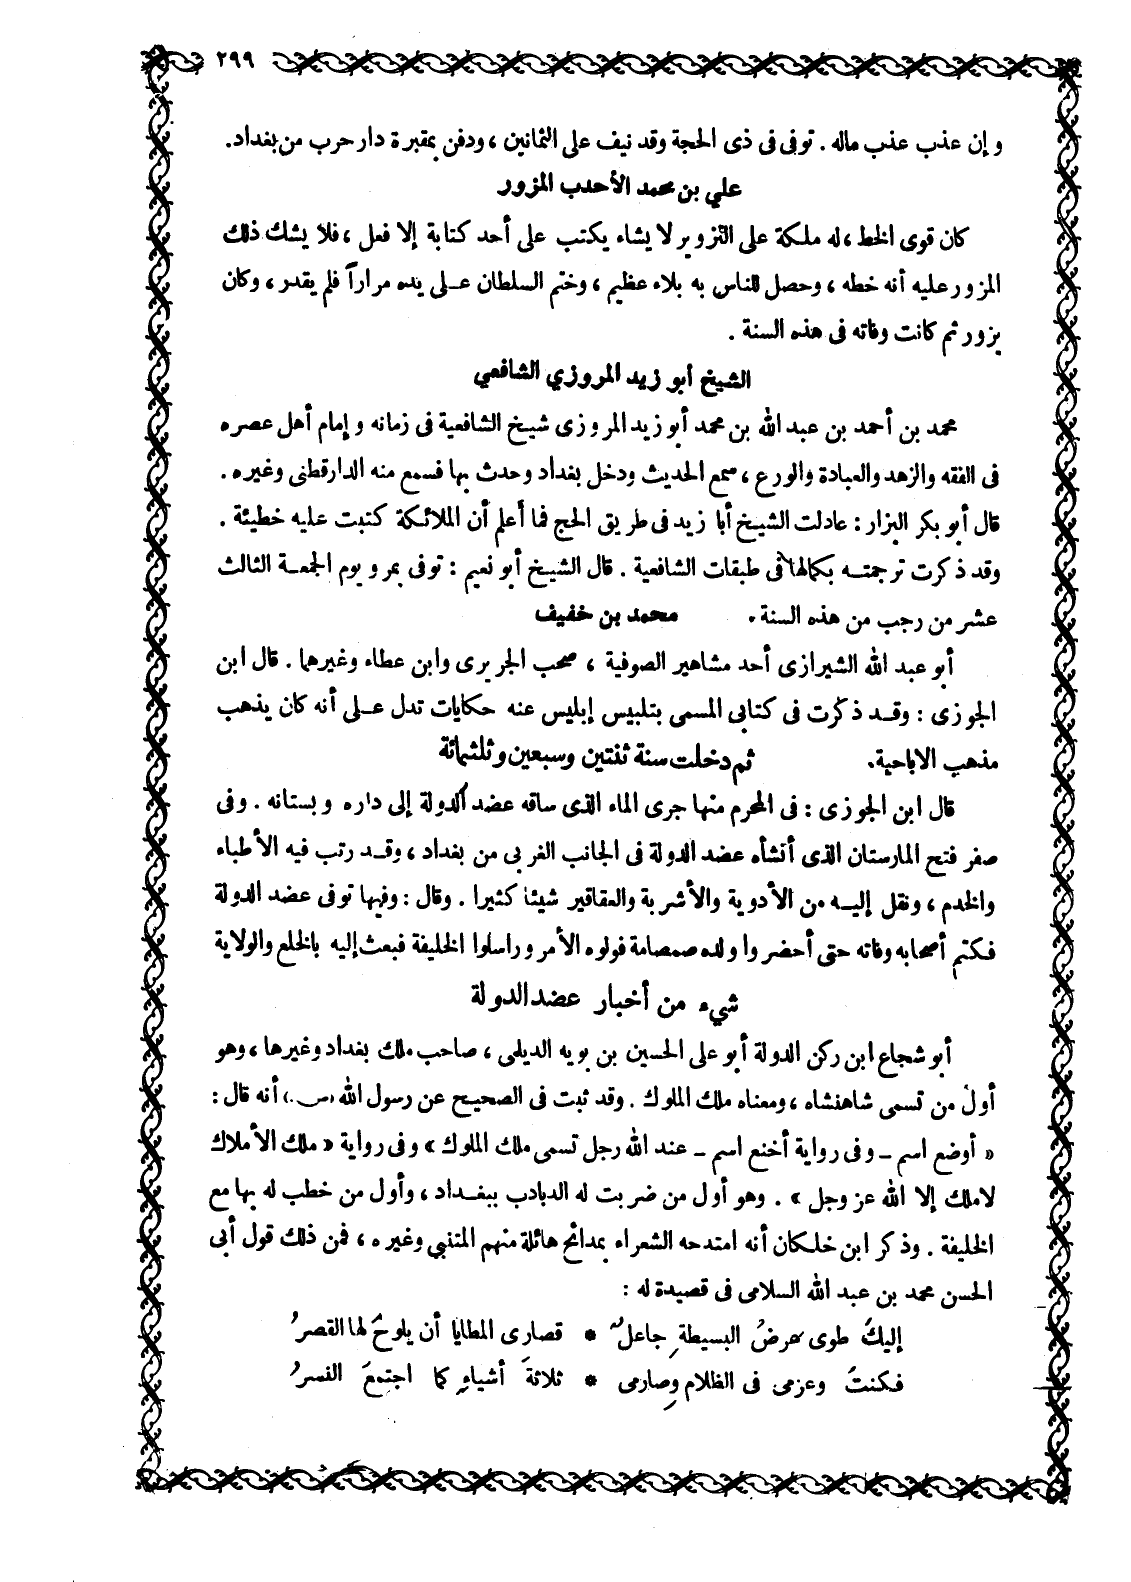 ٢٩٩
وإن عذب عذب ماله . توفى فى ذى الحجة وقد نيف على الثمانين ، ودفن بمقبرة دار حرب من بغداد.
علي بن محمد الأحدب المزور
كان قوى الخط ، له ملكة على التزوير لا يشاء يكتب على أحد كتابة إلا فعل ، فلا يشك ذلك
المزور عليه أنه خطه ، وحصل للناس به بلاء عظيم ، وختم السلطان على يده مراراً فلم يقدر ، وكان
يزور ثم كانت وفاته فى هذه السنة .
الشيخ أبو زيد المروزي الشافعي
محمد بن أحمد بن عبد الله بن محمد أبو زيد المروزى شيخ الشافعية فى زمانه وإمام أهل عصره
فى الفقه والزهد والعبادة والورع ، سمع الحديث ودخل بغداد وحدث بها فسمع منه الدارقطنى وغيره .
قال أبو بكر البزار : عادلت الشيخ أبا زيد فى طريق الحج فما أعلم أن الملائكة كتبت عليه خطيئة .
وقد ذكرت ترجمته بكمالها فى طبقات الشافعية . قال الشيخ أبو نعيم : توفى بمرو يوم الجمعة الثالث
عشر من رجب من هذه السنة . محمد بن خفيف
أبو عبد الله الشيرازى أحد مشاهير الصوفية ، صحب الجريرى وابن عطاء وغيرهما . قال ابن
الجوزى : وقد ذكرت فى كتابى المسمى بتلبيس إبليس عنه حكايات تدل على أنه كان يذهب
مذهب الاباحية. ثم دخلت سنة ثنتين وسبعين وثلثمائة
قال ابن الجوزى : فى المحرم منها جرى الماء الذى ساقه عضد الدولة إلى داره وبستانه . وفى
صفر فتح المارستان الذى أنشأه عضد الدولة فى الجانب الغربى من بغداد ، وقد رتب فيه الأطباء
والخدم ، ونقل إليه من الأدوية والأشربة والعقاقير شيئا كثيرا . وقال : وفيها توفى عضد الدولة
فكتم أصحابه وفاته حتى أحضروا ولده صمصامة فولوه الأمر وراسلوا الخليفة فبعث إليه بالخلع والولاية
شيء من أخبار عضد الدولة
أبو شجاع ابن ركن الدولة أبو على الحسين بن بويه الديلمى ، صاحب ملك بغداد وغيرها ، وهو
أول من تسمى شاهنشاه ، ومعناه ملك الملوك . وقد ثبت فى الصحيح عن رسول الله (س.) أنه قال :
« أوضع اسم ــ وفى رواية أخنع اسم ــ عند الله رجل تسمى ملك الملوك » وفى رواية « ملك الأملاك
لا ملك إلا الله عز وجل » . وهو أول من ضربت له الدبادب ببغداد ، وأول من خطب له بها مع
الخليفة . وذكر ابن خلكان أنه امتدحه الشعراء بمدائح هائلة منهم المتنبي وغيره ، فمن ذلك قول أبى
الحسن محمد بن عبد الله السلامى فى قصيدة له :
إليكَ طوى عرضُ البسيطةِ جاعلٌ * قصارى المطايا أن يلوحَ لها القصرُ
فكنتُ وعزمى فى الظلامِ وصارمى * ثلاثةَ أشياءٍ كما اجتمعَ النسرُ